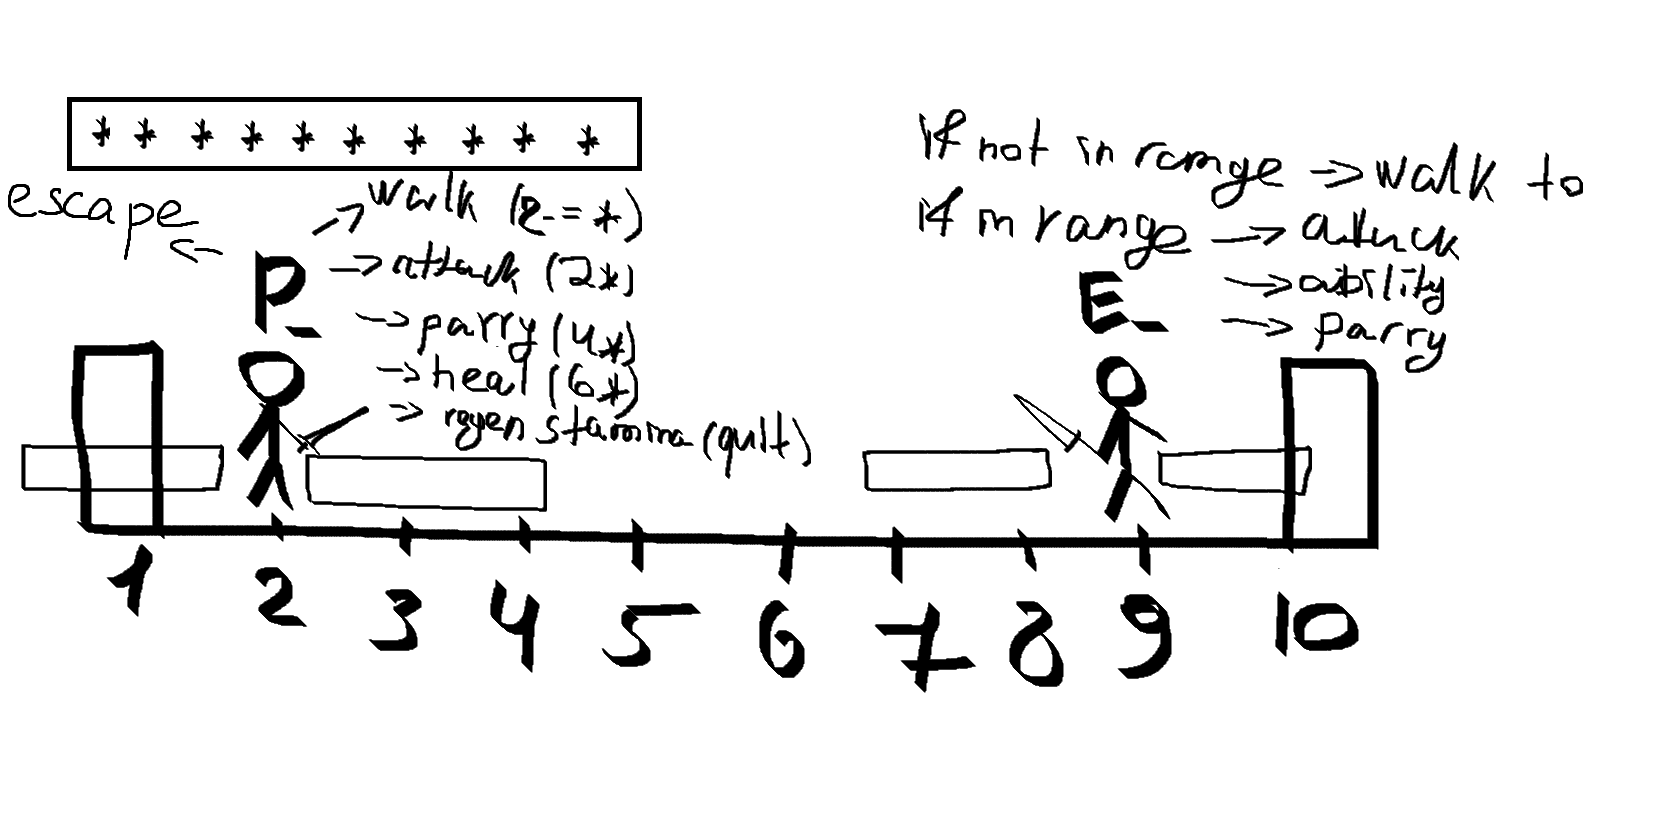 * * * * * * * * * *
escape ←
P_
→ walk (2_=*)
→ attack (2*)
→ parry (4*)
→ heal (6*)
→ regen stamina (quit)
if not in range → walk to
if in range → attack
→ ability
→ parry
E_
1 2 3 4 5 6 7 8 9 10